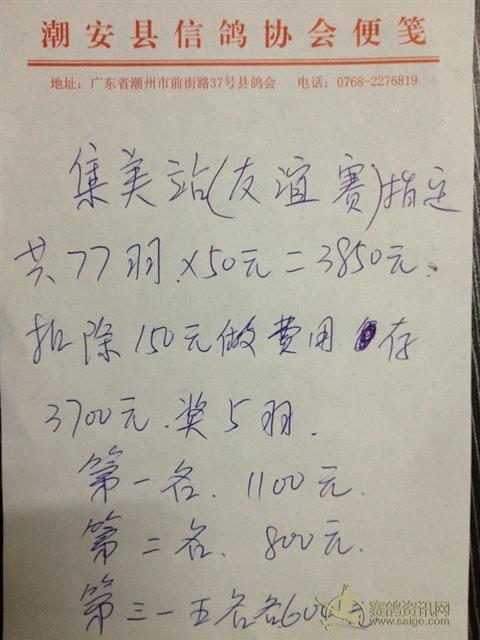 潮安县信鸽协会便笺
地址：广东省潮州市前街路37号县鸽会 电话：0768-2276819
集美站(友谊赛)指定
共77羽×50元=3850元.
扣除150元做费用 存
3700元.奖5羽.
第一名. 1100元.
第二名. 800元.
第三一五名各600元
赛鸽资讯网
www.saige.com